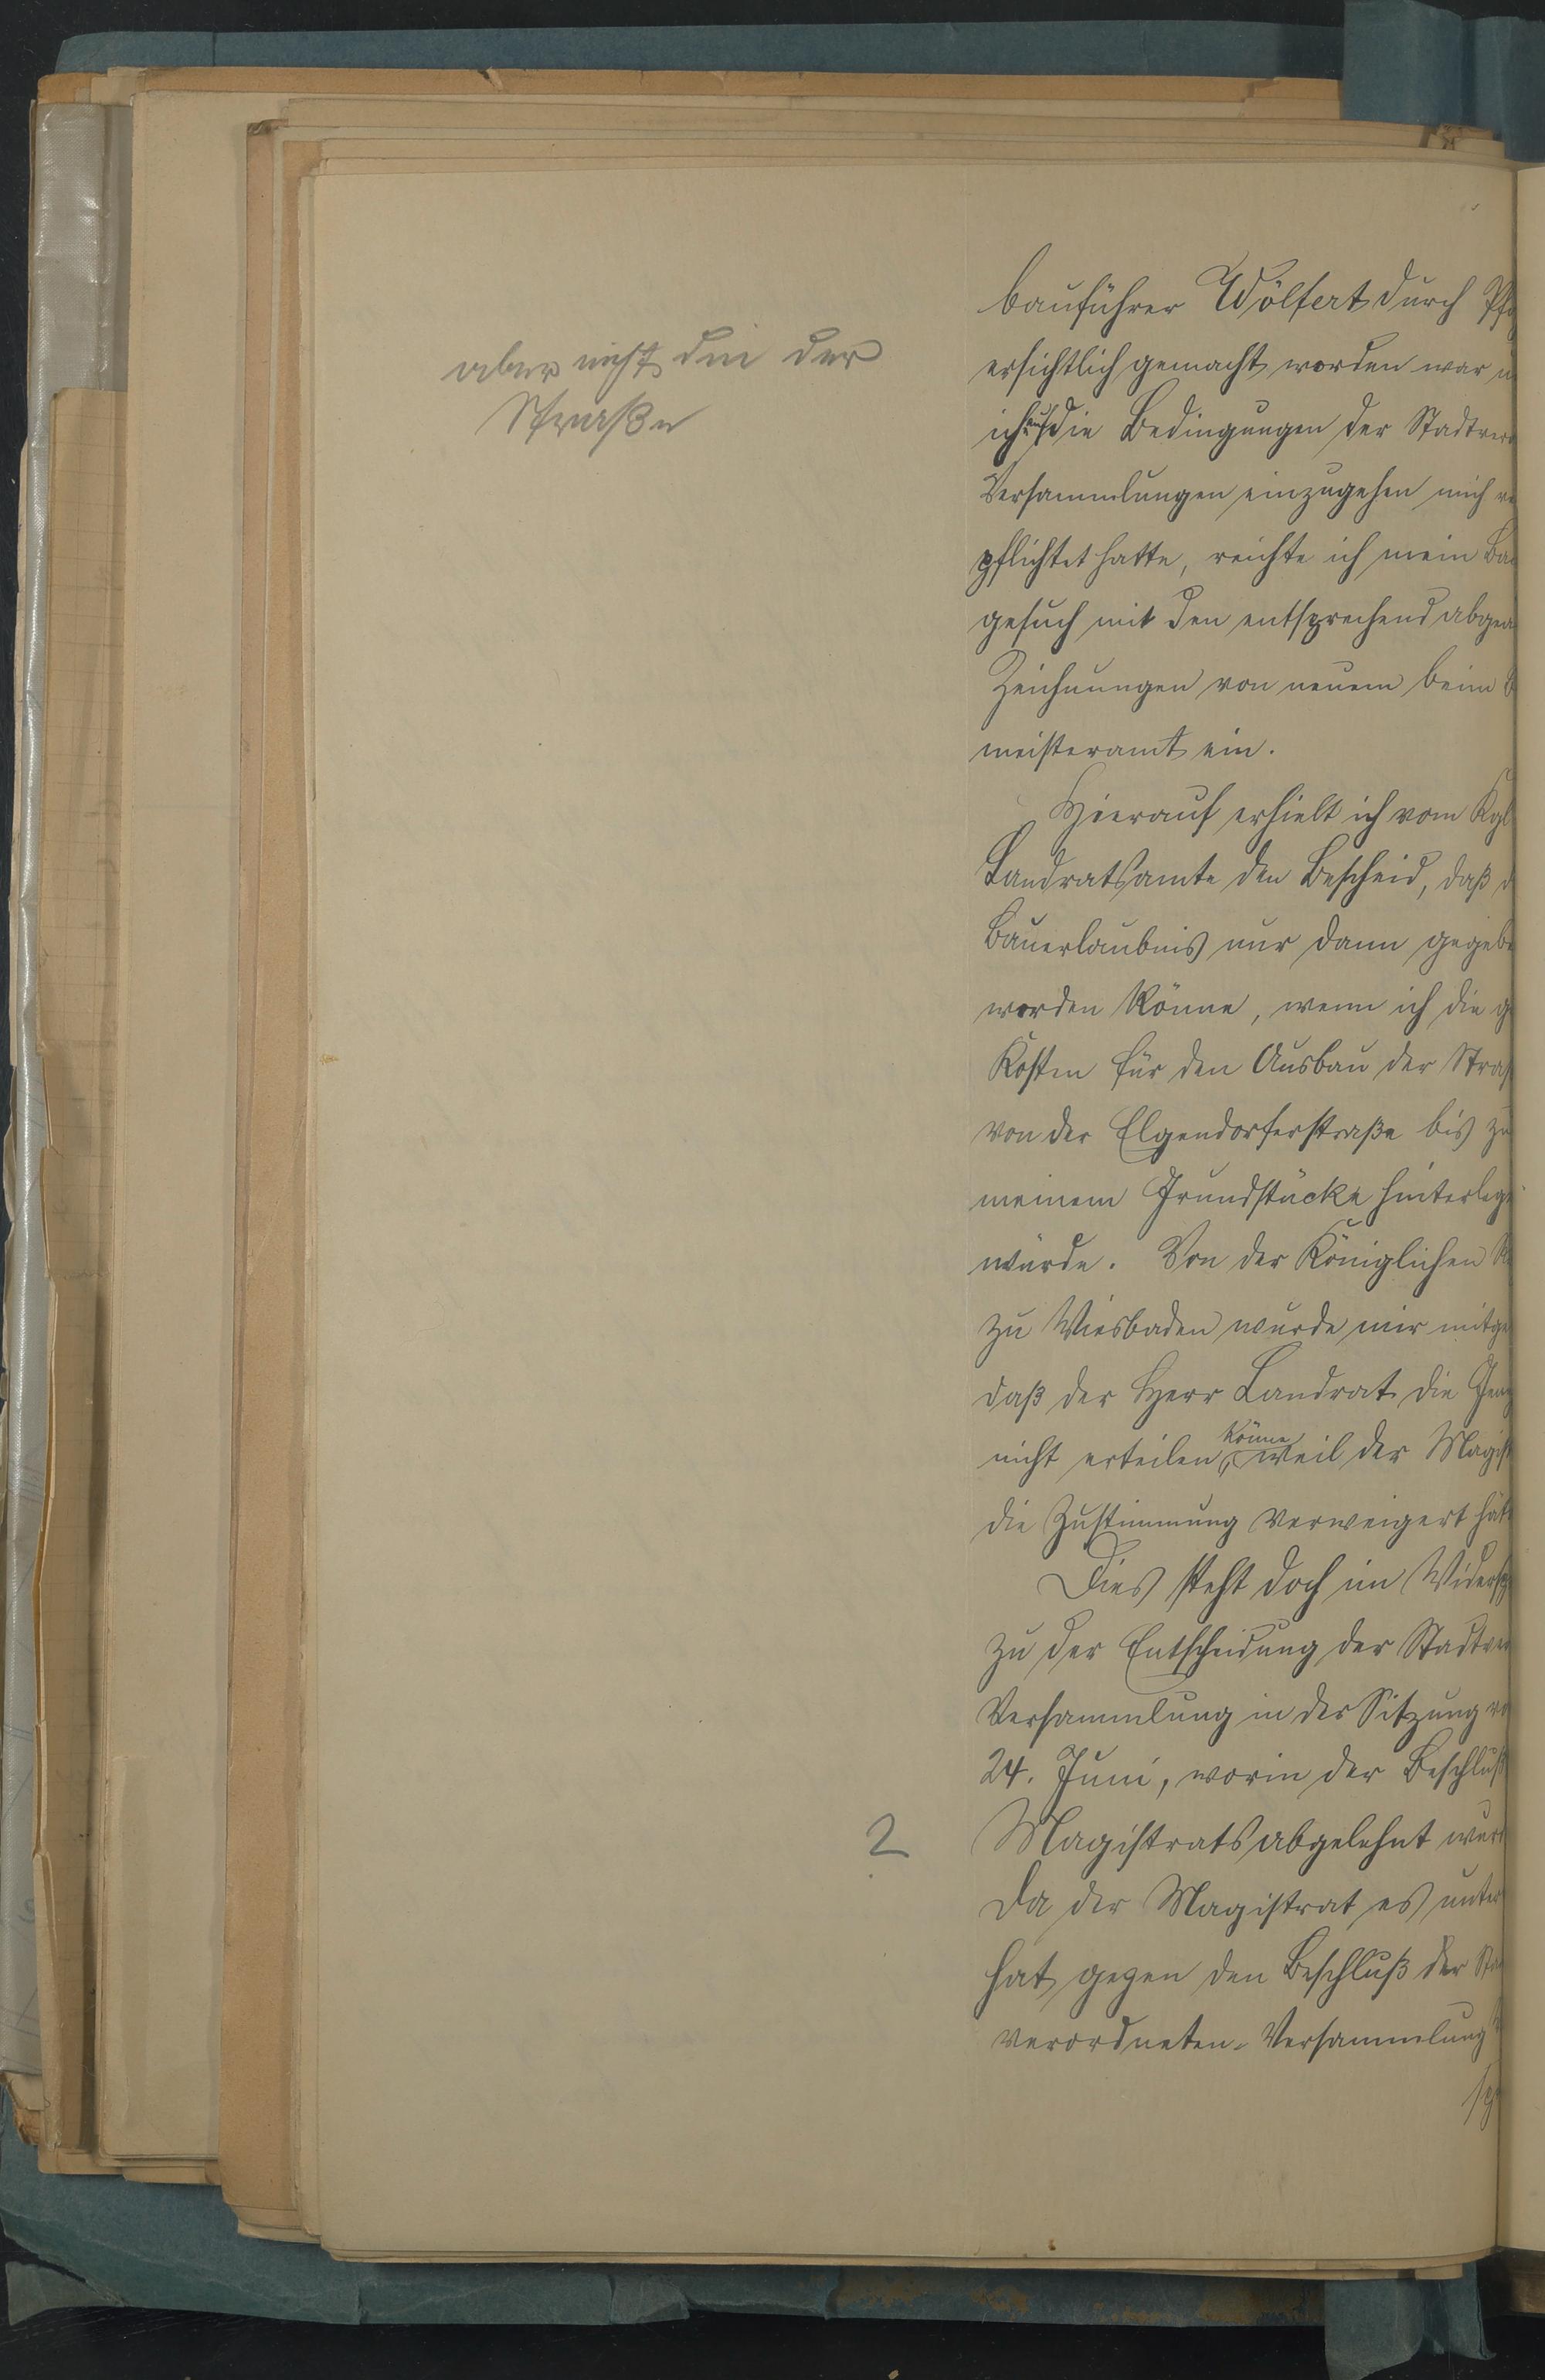 aber nicht die der
Straße
bauführer Wölfert durch Pfä
ersichtlich gemacht worden war u
ich auf die Bedingungen der Stadtver
Versammlungen einzugehen mich ver
pflichtet hatte, reichte ich mein Bau
gesuch mit den entsprechend abgeä
Zeichnungen von neuem beim
meisteramt ein.
Hierauf erhielt ich vom Kgl
Landratsamte den Bescheid, daß d
Bauerlaubnis nur dann gegebe
werden könne, wenn ich die g
Kosten für den Ausbau der Straß
von der Elgendorferstraße bis zu
meinem Grundstücke hinterlege
würde. Von der Königlichen Re
zu Wiesbaden wurde mir mitge
daß der Herr Landrat die Gene
nicht erteilen könne, weil der Magist
die Zustimmung verweigert hät
Dies steht doch im Widersp
zu der Entscheidung der Stadtver
Versammlung in der Sitzung vo
24. Juni, worin der Beschluß
2 Magistrats abgelehnt wurd
Da der Magistrat es unter
hat gegen den Beschluß der Sta
verordneten-Versammlung
sp